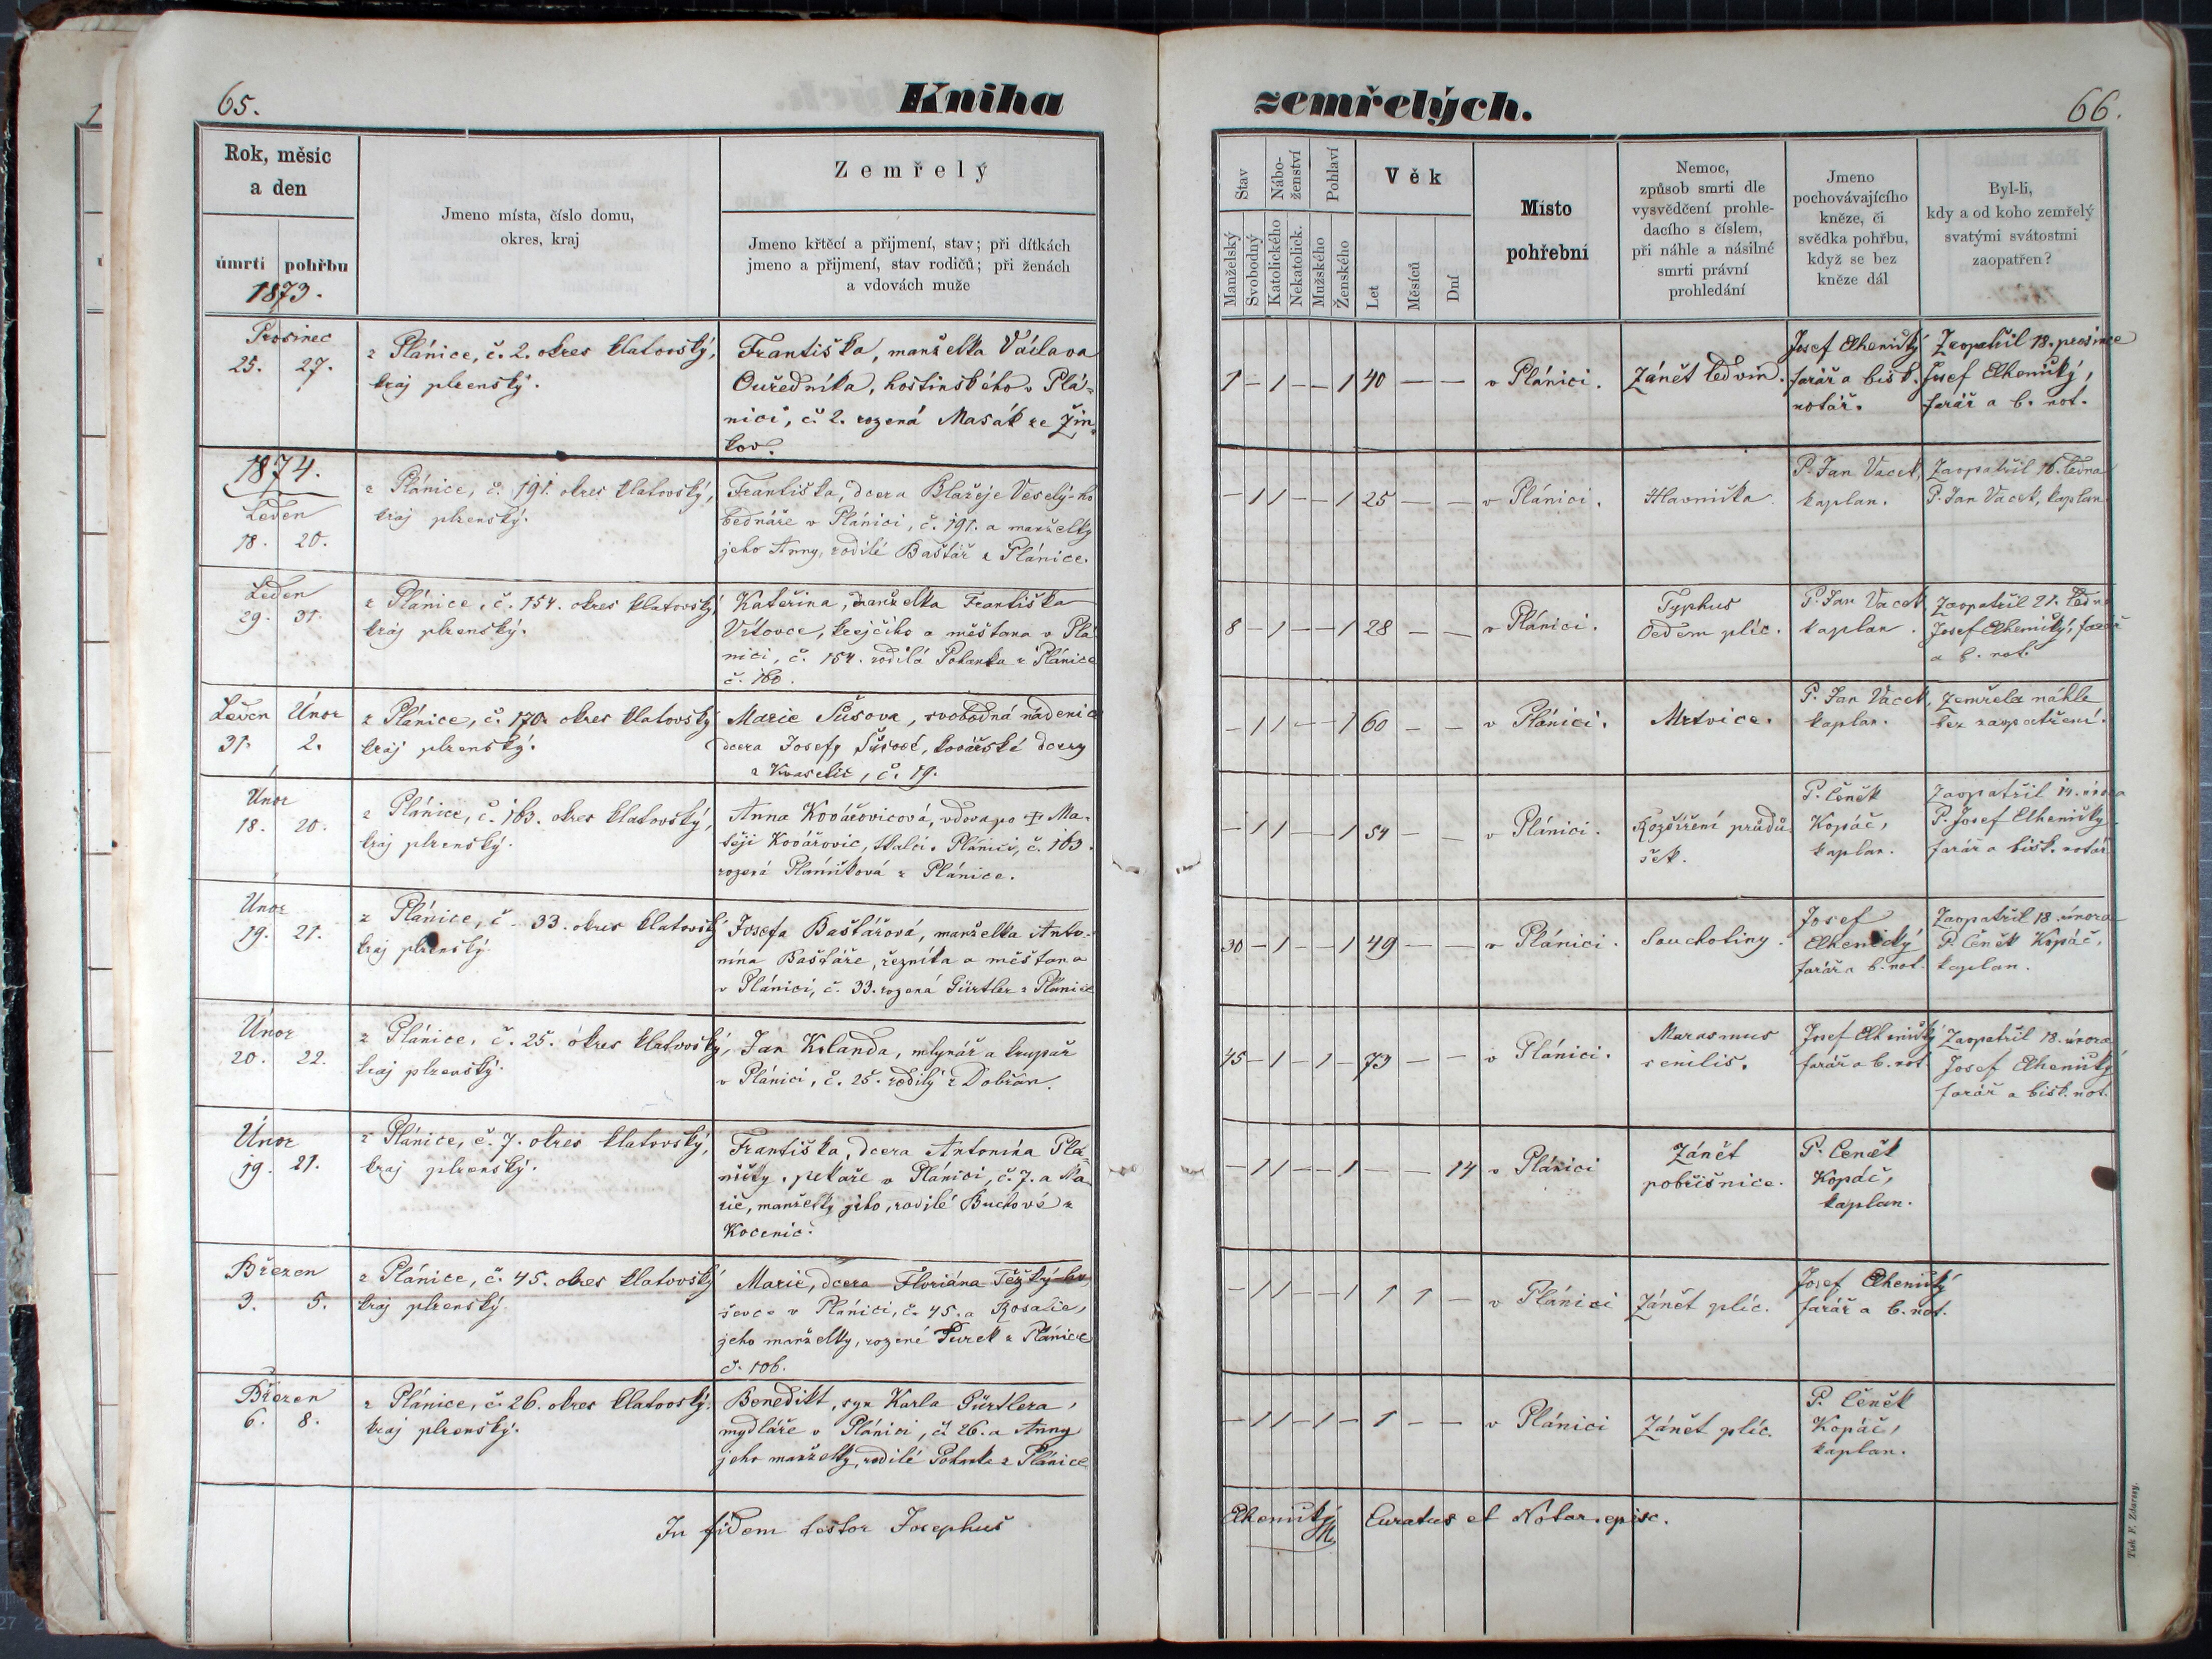 65.
Kniha
zemřelých.
66.
Rok, měsíc
a den
úmrtí pohřbu
1873.
Jmeno místa, číslo domu,
okres, kraj
Zemřelý
Jmeno křtěcí a přijmení, stav; při dítkách
jmeno a přijmení, stav rodičů; při ženách
a vdovách muže
Stav
Nábo-
ženství
Pohlaví
Věk
Manželský
Svobodný
Katolického
Nekatolick.
Mužského
Ženského
Let
Měsíců
Dní
Místo
pohřební
Nemoc,
způsob smrti dle
vysvědčení prohle-
dacího s číslem,
při náhle a násilné
smrti právní
prohledání
Jmeno
pochovávajícího
kněze, či
svědka pohřbu,
když se bez
kněze dál
Byl-li,
kdy a od koho zemřelý
svatými svátostmi
zaopatřen?
Prosinec
25. 27.
z Plánice, č. 2. okres klatovský,
kraj plzenský.
Františka, manželka Václava
Ouředníka, hostinského v Plá-
nici, č. 2. rozená Masák ze Žin-
kov.
1 – 1 – – 1 40 — —
v Plánici.
Zánět ledvin.
Josef Elhenický
farář a bisk.
notář.
Zaopatřil 18. prosince
Josef Elhenický,
farář a b. not.
1874.
Leden
18. 20.
z Plánice, č. 191. okres klatovský,
kraj plzenský.
Františka, dcera Blažeje Veselý-ho
bednáře v Plánici, č. 191. a manželky
jeho Anny, rodilé Baštář z Plánice.
– 1 1 – – 1 25 — —
v Plánici.
Hlavnička
P. Jan Vacek,
kaplan.
Zaopatřil 16. ledna
P. Jan Vacek, kaplan
Leden
29. 31.
z Plánice, č. 154. okres klatovský,
kraj plzenský.
Kateřina, manželka Františka
Vítovce, krejčího a měšťana v Plá
nici, č. 154. rodilá Pohanka z Plánice
č. 160.
8 – 1 – – 1 28 — —
v Plánici.
Typhus
Oedem plic.
P. Jan Vacek
kaplan.
Zaopatřil 21. ledna
Josef Elhenický, farář
a b. not.
Leden Únor
31. 2.
z Plánice, č. 170. okres klatovský
kraj plzenský.
Marie Šůsova, svobodná nádenice
dcera Josefy Šůsové, kovářské dcery
z Kvaselic, č. 19.
– 1 1 – – 1 60 — —
v Plánici.
Mrtvice.
P. Jan Vacek,
kaplan.
Zemřela náhle
bez zaopatření.
Únor
18. 20.
z Plánice, č. 163. okres klatovský,
kraj plzenský.
Anna Kovářovicová, vdova po ✝ Ma-
těji Kovářovic, tkalci v Plánici, č. 163.
rozená Pláničková z Plánice.
– 1 1 – – 1 54 — —
v Plánici.
Rozšíření průdu-
šek.
P. Čeněk
Kopáč,
kaplan.
Zaopatřil 14. února
P. Josef Elhenický
farář a bisk. notář
Únor
19. 21.
z Plánice, č. 33. okres klatovský
kraj plzenský
Josefa Baštářová, manželka Anto-
nína Baštáře, řezníka a měšťana
v Plánici, č. 33. rozená Gürtler z Plánice
30 – 1 – – 1 49 — —
v Plánici.
Souchotiny.
Josef
Elhenický
farář a b. not.
Zaopatřil 18. února
P. Čeněk Kopáč,
kaplan.
Únor
20. 22.
z Plánice, č. 25. okres klatovský,
kraj plzenský.
Jan Kolanda, mlynář a krupař
v Plánici, č. 25. rodilý z Dobřan.
45 – 1 – 1 – 73 — —
v Plánici.
Marasmus
senilis.
Josef Elhenický
farář a b. not.
Zaopatřil 18. února
Josef Elhenický
farář a bisk. not.
Únor
19. 21.
z Plánice, č. 7. okres klatovský,
kraj plzenský.
Františka, dcera Antonína Plá-
ničky, pekaře v Plánici, č. 7. a Ma-
rie, manželky jeho, rodilé Buchové z
Kocenic.
– 1 1 – – 1 — — 14
v Plánici
Zánět
pobřišnice.
P. Čeněk
Kopáč,
kaplan.
Březen
3. 5.
z Plánice, č. 45. okres klatovský
kraj plzenský.
Marie, dcera Floriána Těžký-ho
ševce v Plánici, č. 45. a Rosalie,
jeho manželky, rozené Turek z Plánice
č. 106.
– 1 1 – – 1 1 1 —
v Plánici
Zánět plic.
Josef Elhenický
farář a b. not.
Březen
6. 8.
z Plánice, č. 26. okres klatovský.
kraj plzenský.
Benedikt, syn Karla Gürtlera,
mydláře v Plánici, č. 26. a Anny
jeho manželky, rodilé Pohanka z Plánice
– 1 1 – 1 – 1 — —
v Plánici
Zánět plic.
P. Čeněk
Kopáč,
kaplan.
In fidem testor Josephus
Elhenický Curatus et Notar. episc.
Tisk F. Zdarssy.